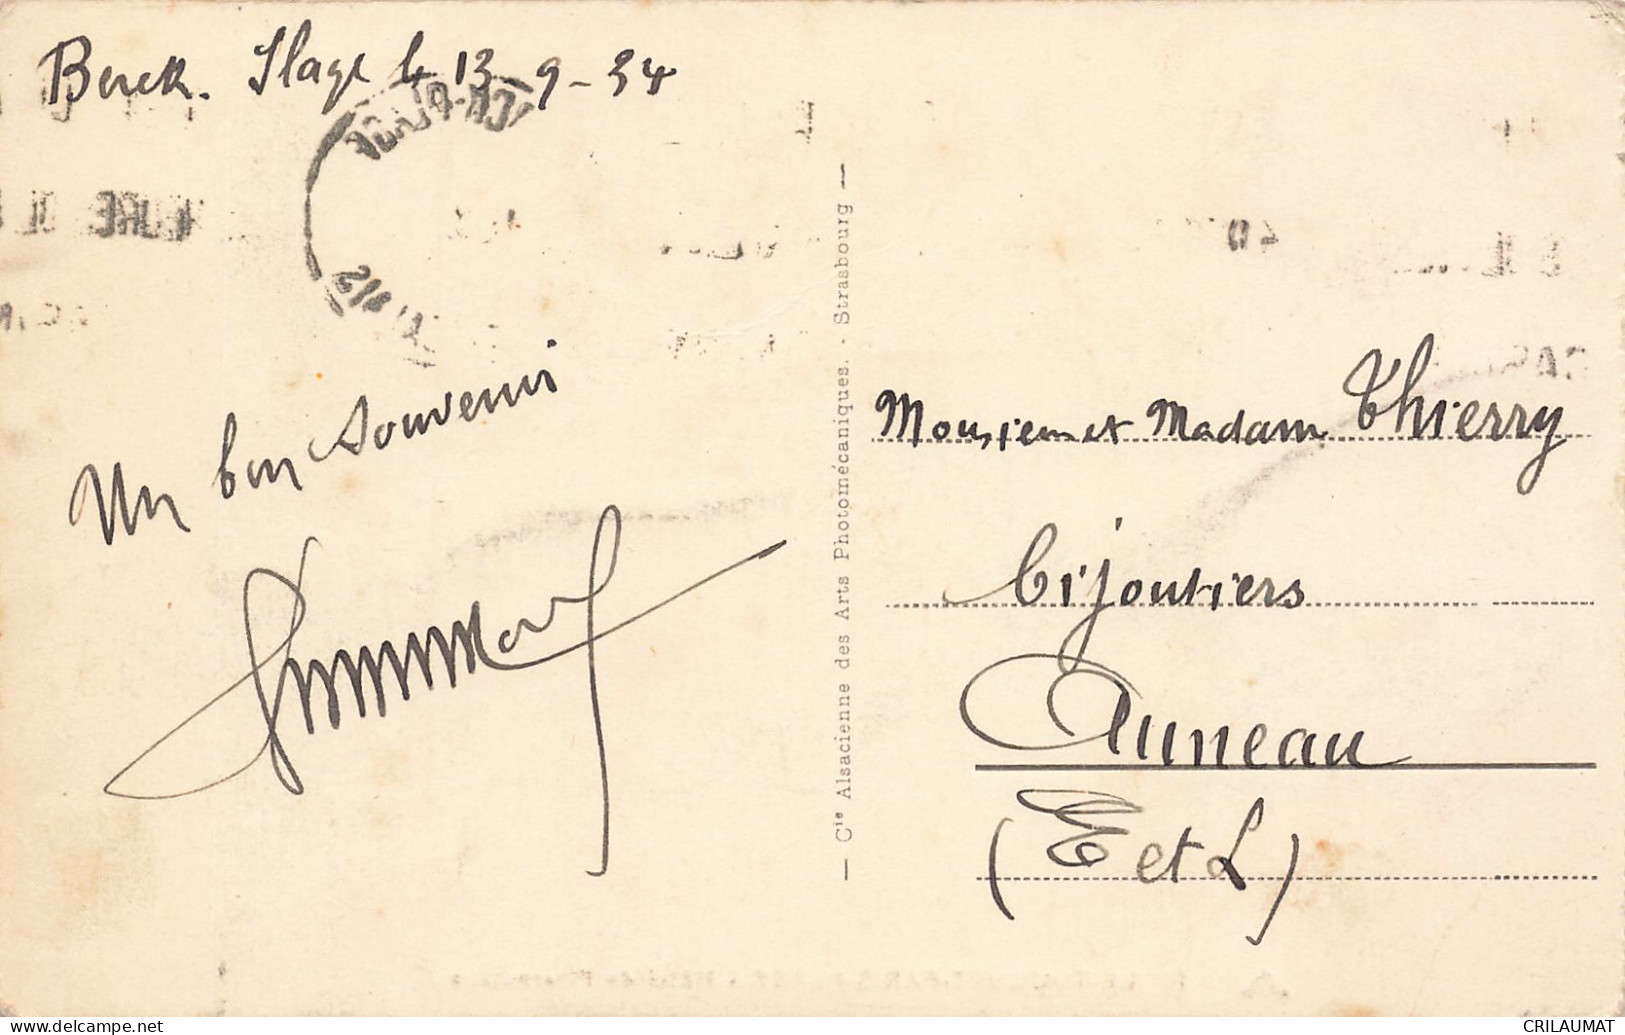 Berck. Plage le 13-9-34
Un bon souvenir
— Cie Alsacienne des Arts Photomécaniques. - Strasbourg —
Monsieur et Madam Thierry
bijoutiers
Auneau
(E et L)
CRILAUMAT